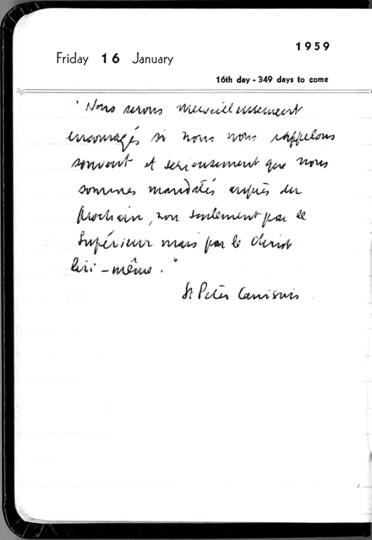 1959
Friday 16 January
16th day - 349 days to come
"Nous serons merveilleusement
encouragés si nous nous rappelons
souvent et sérieusement que nous
sommes mandatés auprès du
Prochain, non seulement par le
Supérieur mais par le Christ
lui-même."
St Peter Canisius